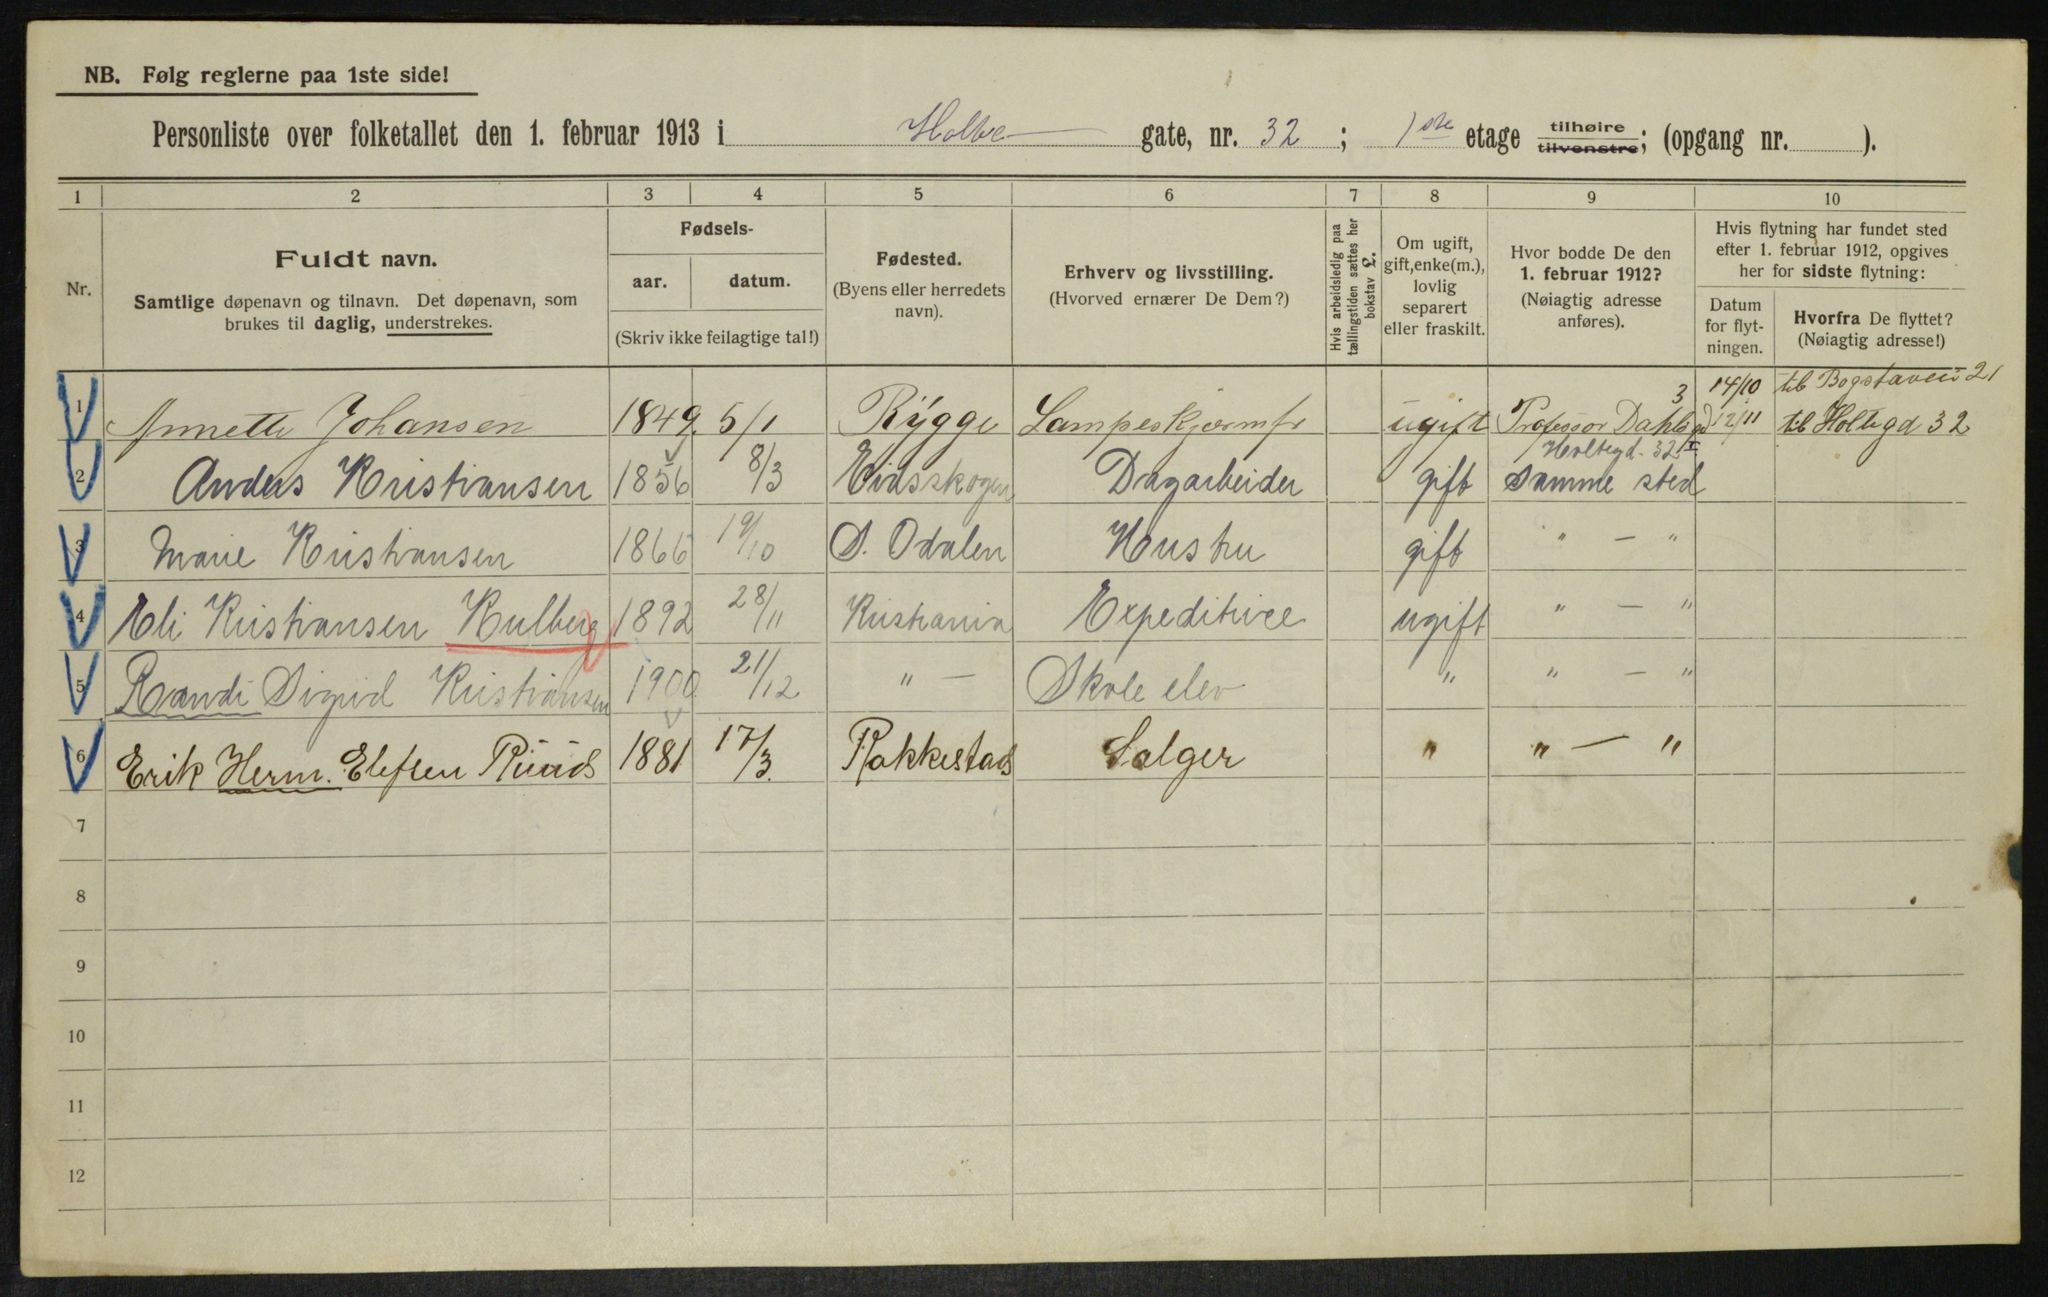 NB. Følg reglerne paa 1ste side!
Personliste over folketallet den 1. februar 1913 i Holte gate, nr. 32 ; 1ste etage tilhøire tilvenstre; (opgang nr. ).
1 2 3 4 5 6 7 8 9 10
Nr.
Fuldt navn.
Samtlige døpenavn og tilnavn. Det døpenavn, som
brukes til daglig, understrekes.
Fødsels-
aar. datum.
(Skriv ikke feilagtige tal!)
Fødested.
(Byens eller herredets
navn).
Erhverv og livsstilling.
(Hvorved ernærer De Dem?)
Hvis arbeidsledig paa
tællingstiden sættes her
bokstav L.
Om ugift,
gift, enke(m.),
lovlig
separert
eller fraskilt.
Hvor bodde De den
1. februar 1912?
(Nøiagtig adresse
anføres).
Hvis flytning har fundet sted
efter 1. februar 1912, opgives
her for sidste flytning:
Datum
for flyt-
ningen.
Hvorfra De flyttet?
(Nøiagtig adresse!)
14/10 til Bogstaveii 21
1 Annette Johansen 1849 5/1 Rygge Lampeskjærmfr ugift Professor Dahlsgd 3 12/11 til Holtegd 32
Holtegd. 32 I
2 Anders Kristiansen 1856 8/3 Eidsskogen Dagarbeider gift Samme sted
3 Marie Kristiansen 1866 19/10 S. Odalen Hustru gift " — "
4 Eli Kristiansen Kulberg 1892 28/11 Kristiania Expeditrice ugift " — "
5 Randi Sigrid Kristiansen 1900 21/12 " — Skole elev " " — "
6 Erik Herm. Elefsen Ruud 1881 17/3 Rakkestad Sælger " " — "
7
8
9
10
11
12